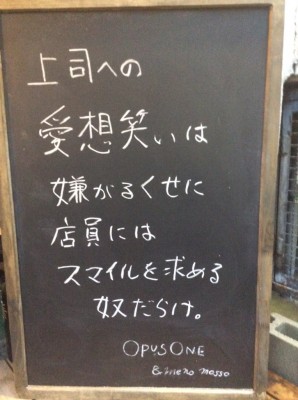 上司への
愛想笑いは
嫌がるくせに
店員には
スマイルを求める
奴だらけ。
OPUSONE
mosso